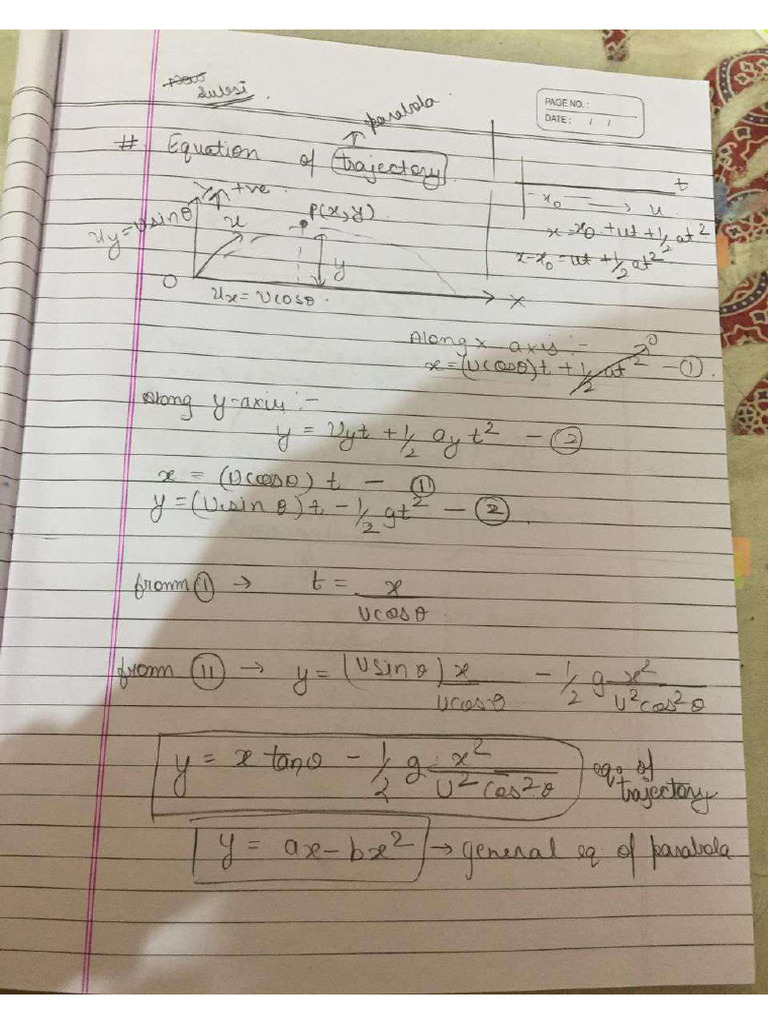 Sulesi
PAGE NO.:
DATE: / /
parabola
# Equation of trajectory
t
y +ve
Uy=Usinθ
u
P(x,y)
y
O
Ux = Ucosθ.
X
x₀ → u
x = x₀ + ut + 1/2 at²
x-x₀ = ut + 1/2 at²
Along x axis :-
x = (Ucosθ)t + 1/2 at² 0 - ①.
Along y-axis :-
y = Uyt + 1/2 ay t² - ②
x = (Ucosθ) t - ⑪
y = (U sin θ) t - 1/2 gt² - ②
fromm ① → t = x/Ucosθ
fromm ⑪ → y = (Usinθ) x/Ucosθ - 1/2 g x²/U²cos²θ
y = x tanθ - 1/2 g x²/U² cos²θ eqⁿ of trajectory
y = ax - bx² → general eq of parabola